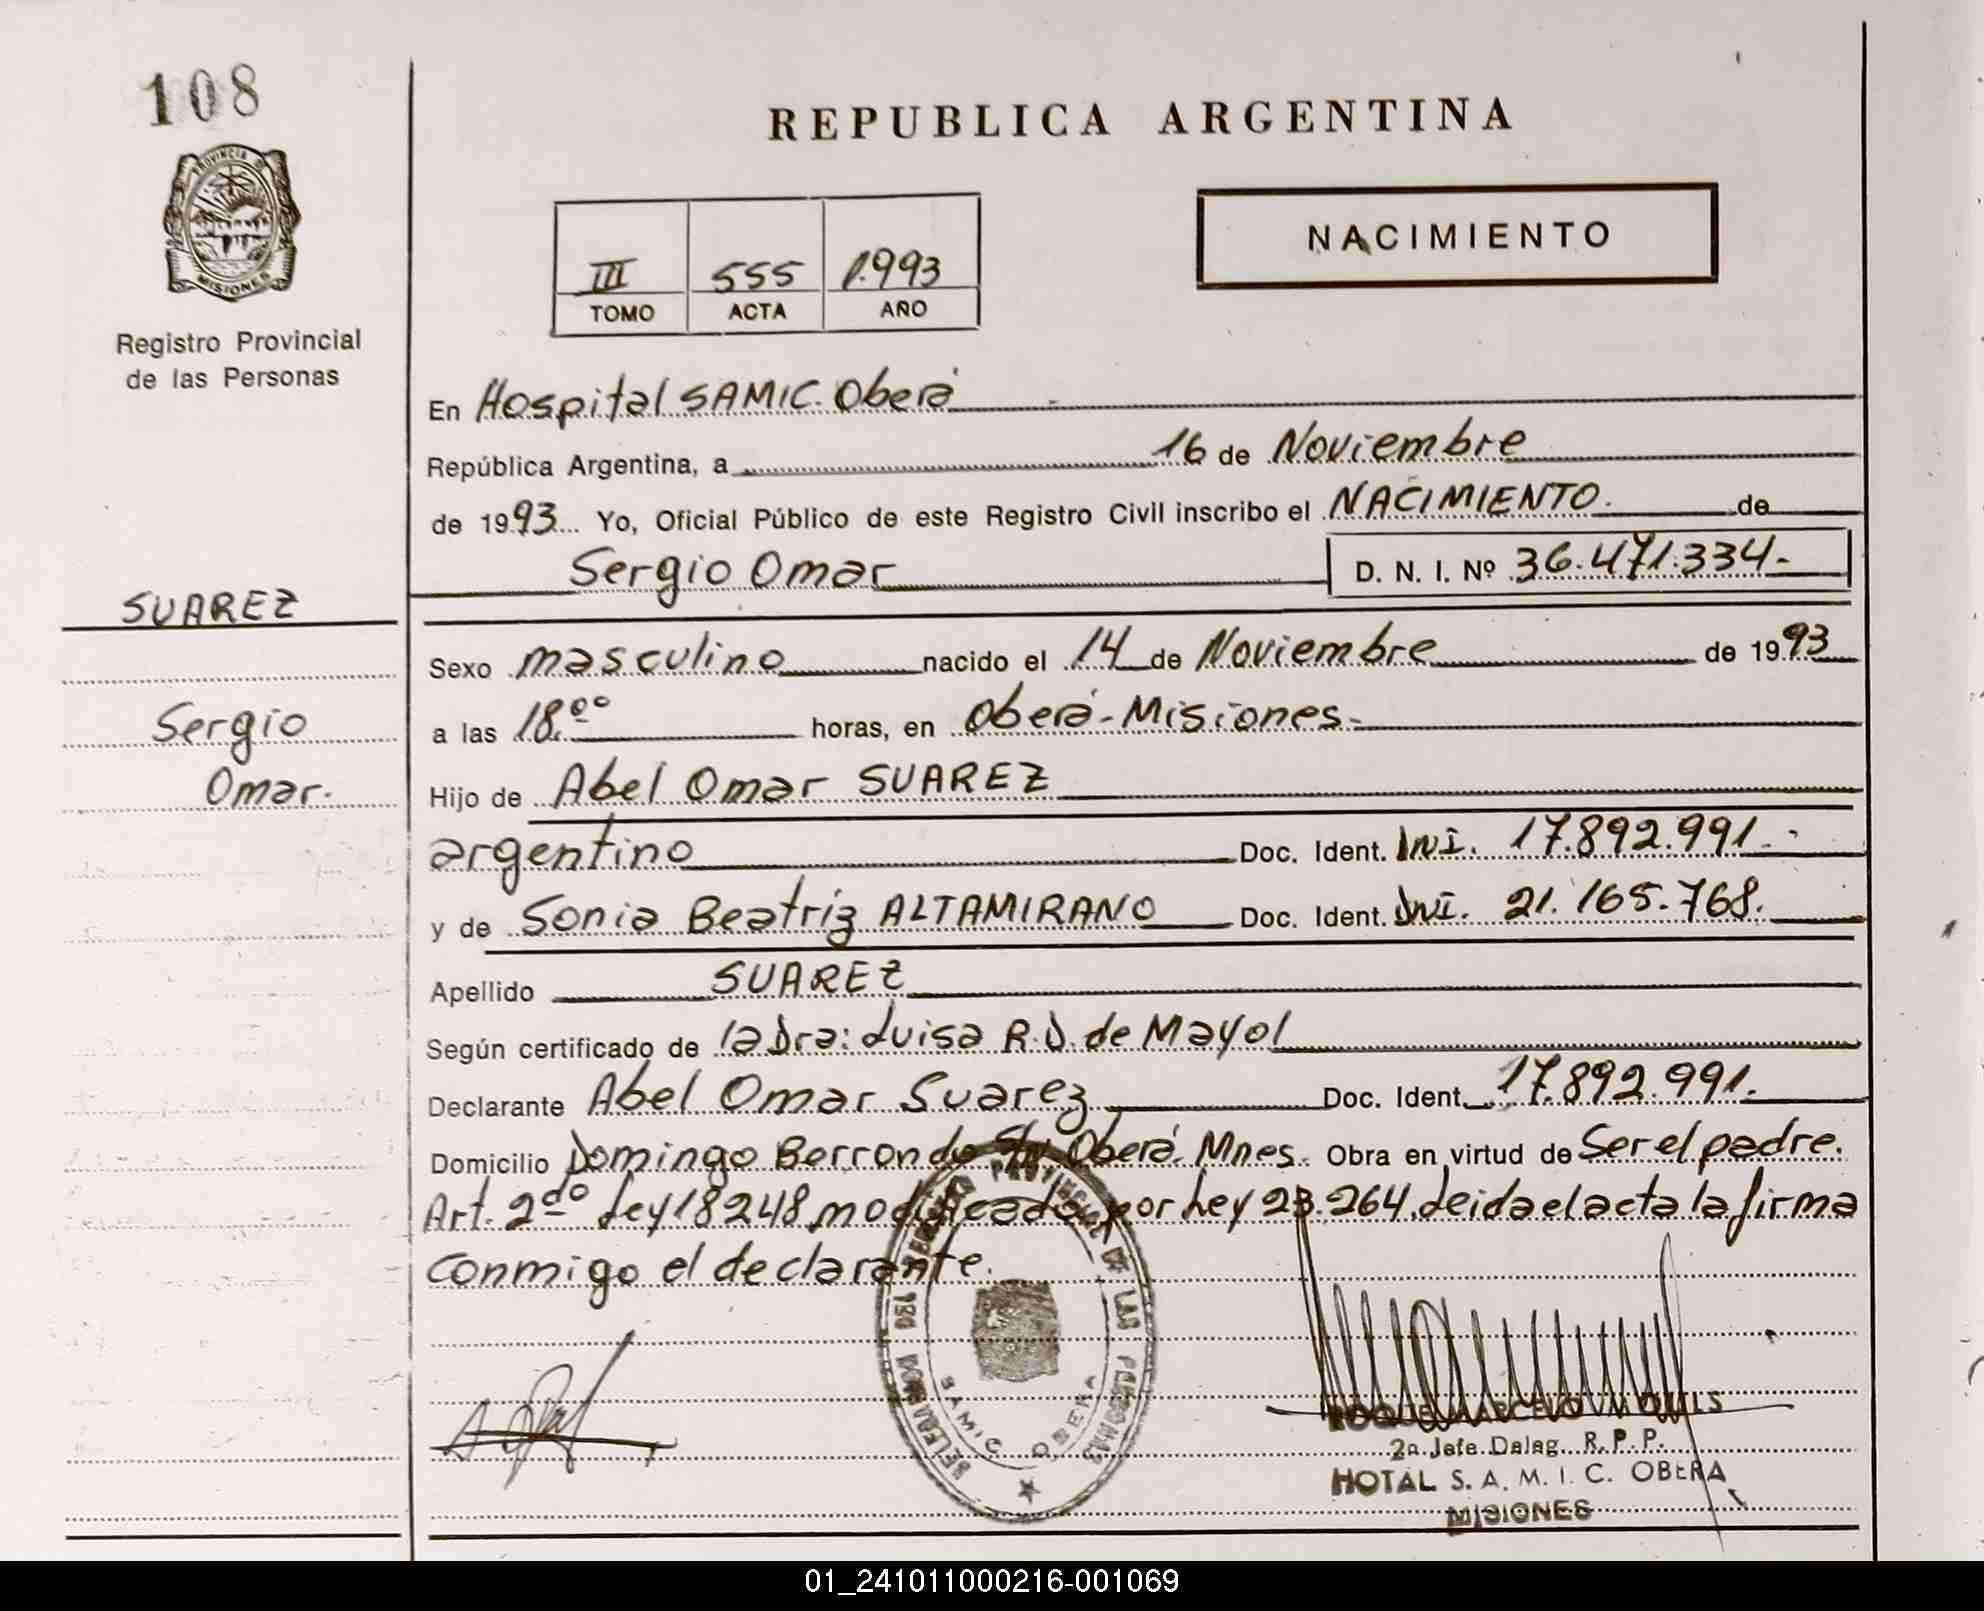 108
REPUBLICA ARGENTINA
PROVINCIA D
MISIONES
Registro Provincial
de las Personas
III 555 1.993
TOMO ACTA AÑO
NACIMIENTO
En Hospital SAMIC. Oberá
República Argentina, a 16 de Noviembre
de 1993 Yo, Oficial Público de este Registro Civil inscribo el NACIMIENTO. de
Sergio Omar D. N. I. Nº 36.471.334-
SUAREZ
Sergio
Omar.
Sexo masculino nacido el 14 de Noviembre de 1993
a las 18.ºº horas, en Oberá-Misiones-
Hijo de Abel Omar SUAREZ
argentino Doc. Ident. DNI. 17.892.991.-
y de Sonia Beatriz ALTAMIRANO Doc. Ident. DNI. 21.165.768.
Apellido SUAREZ
Según certificado de la Dra: Luisa R.D. de Mayol
Declarante Abel Omar Suarez Doc. Ident. 17.892.991.
Domicilio Domingo Berrondo S/N Oberá. Mnes. Obra en virtud de Ser el padre.
Art. 2do Ley 18248 modificado por Ley 23.264. Leida el acta la firma
conmigo el declarante.
PROVINCIAL DE LAS PERSONAS
SAMIC OBERA
ROQUE MARCELO
2a. Jefe Daleg. R. P. P.
HOTAL S. A. M. I. C. OBERA
MISIONES
01_241011000216-001069